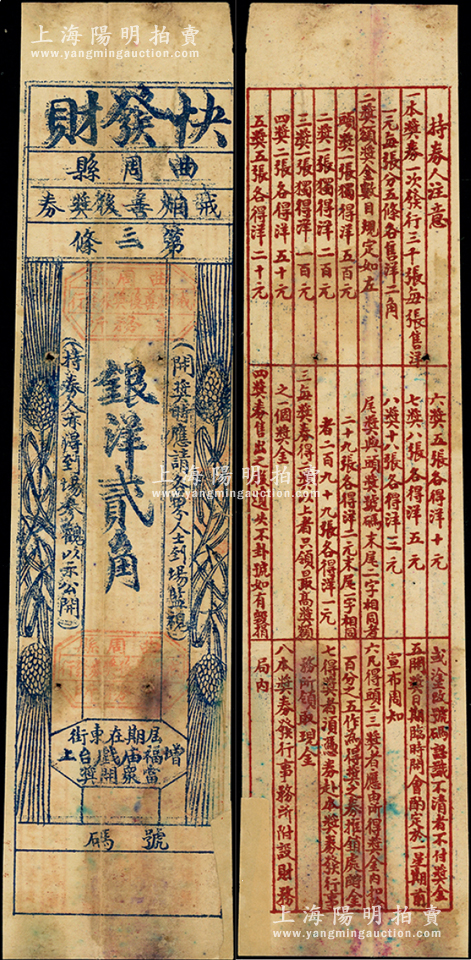 上海陽明拍賣
www.yangmingauction.com
快發財
曲周縣
戒煙善後獎券
第三條
(開獎時應請各界人士到場監視)
銀洋貳角
(持券人亦得到場參觀以示公開)
屆期在東街
增福庙戲台上
當眾開獎
號碼
上海陽明拍賣
www.yangmingauction.com
持券人注意
一本獎券一次發行三千張每張售洋
一元每張分五條各售洋二角
二獎額獎金數目規定如左
頭獎一張獨得洋五百元
二獎一張獨得洋二百元
三獎一張獨得洋一百元
四獎二張各得洋五十元
五獎五張各得洋二十元
六獎五張各得洋十元
七獎八張各得洋五元
八獎十八張各得洋三元
尾獎與頭獎號碼末尾二字相同者
二十九張各得洋二元末尾一字相同
者二百九十九張各得洋一元
三每獎券得二獎以上者只領最高獎額
之一個獎金
四獎券售出之後遺失不卦號如有毀損
或塗改號碼認識不清者不付獎金
五開獎日期臨時開會酌定於一星期前
宣布周知
六凡得頭二三獎者應由所得獎金內扣
百分之五作為得獎之券推銷處酬金
七得獎者須憑券赴本獎券發行事
務所領取現金
八本獎券發行事務所附設財務
局內
上海陽明拍賣
www.yangmingauction.com
上海陽明拍賣
www.yangmingauction.com